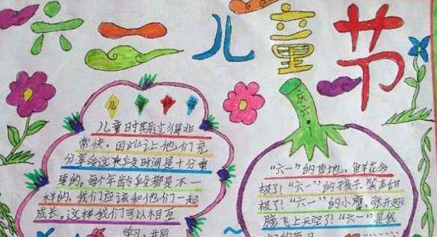 六一儿童节
儿童时期过得非
常快，因此让他们充
分享受这段时间是十分重
要的，每个年龄段都是不一
样的，我们应该和他们一起
成长，这样我们可以相互
学习，共同
"六一"的草地，鲜花多
极了！"六一"的孩子笑声甜
极了！"六一"的小鹰，张开翅
膀飞上天空了！"六一"是我